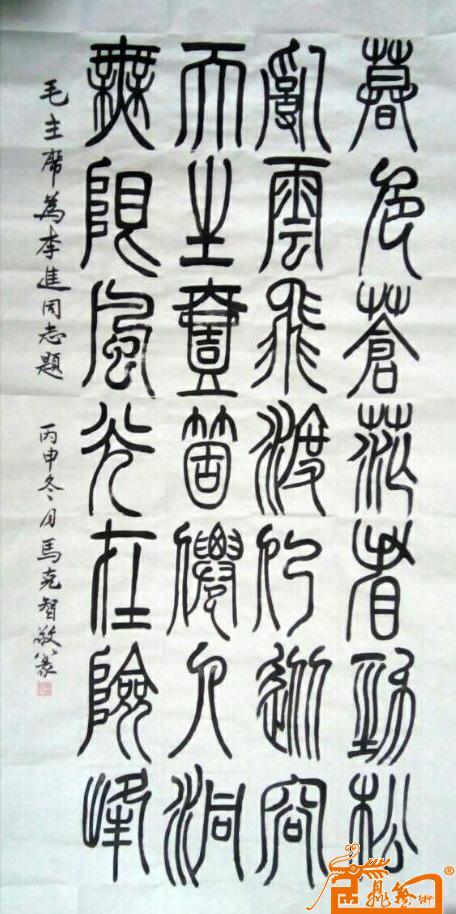 暮色蒼茫看勁松
亂雲飛渡仍從容
天生壹箇僊人洞
無限風光在險峰
毛主席為李進同志題 丙申冬月馬克智敬篆